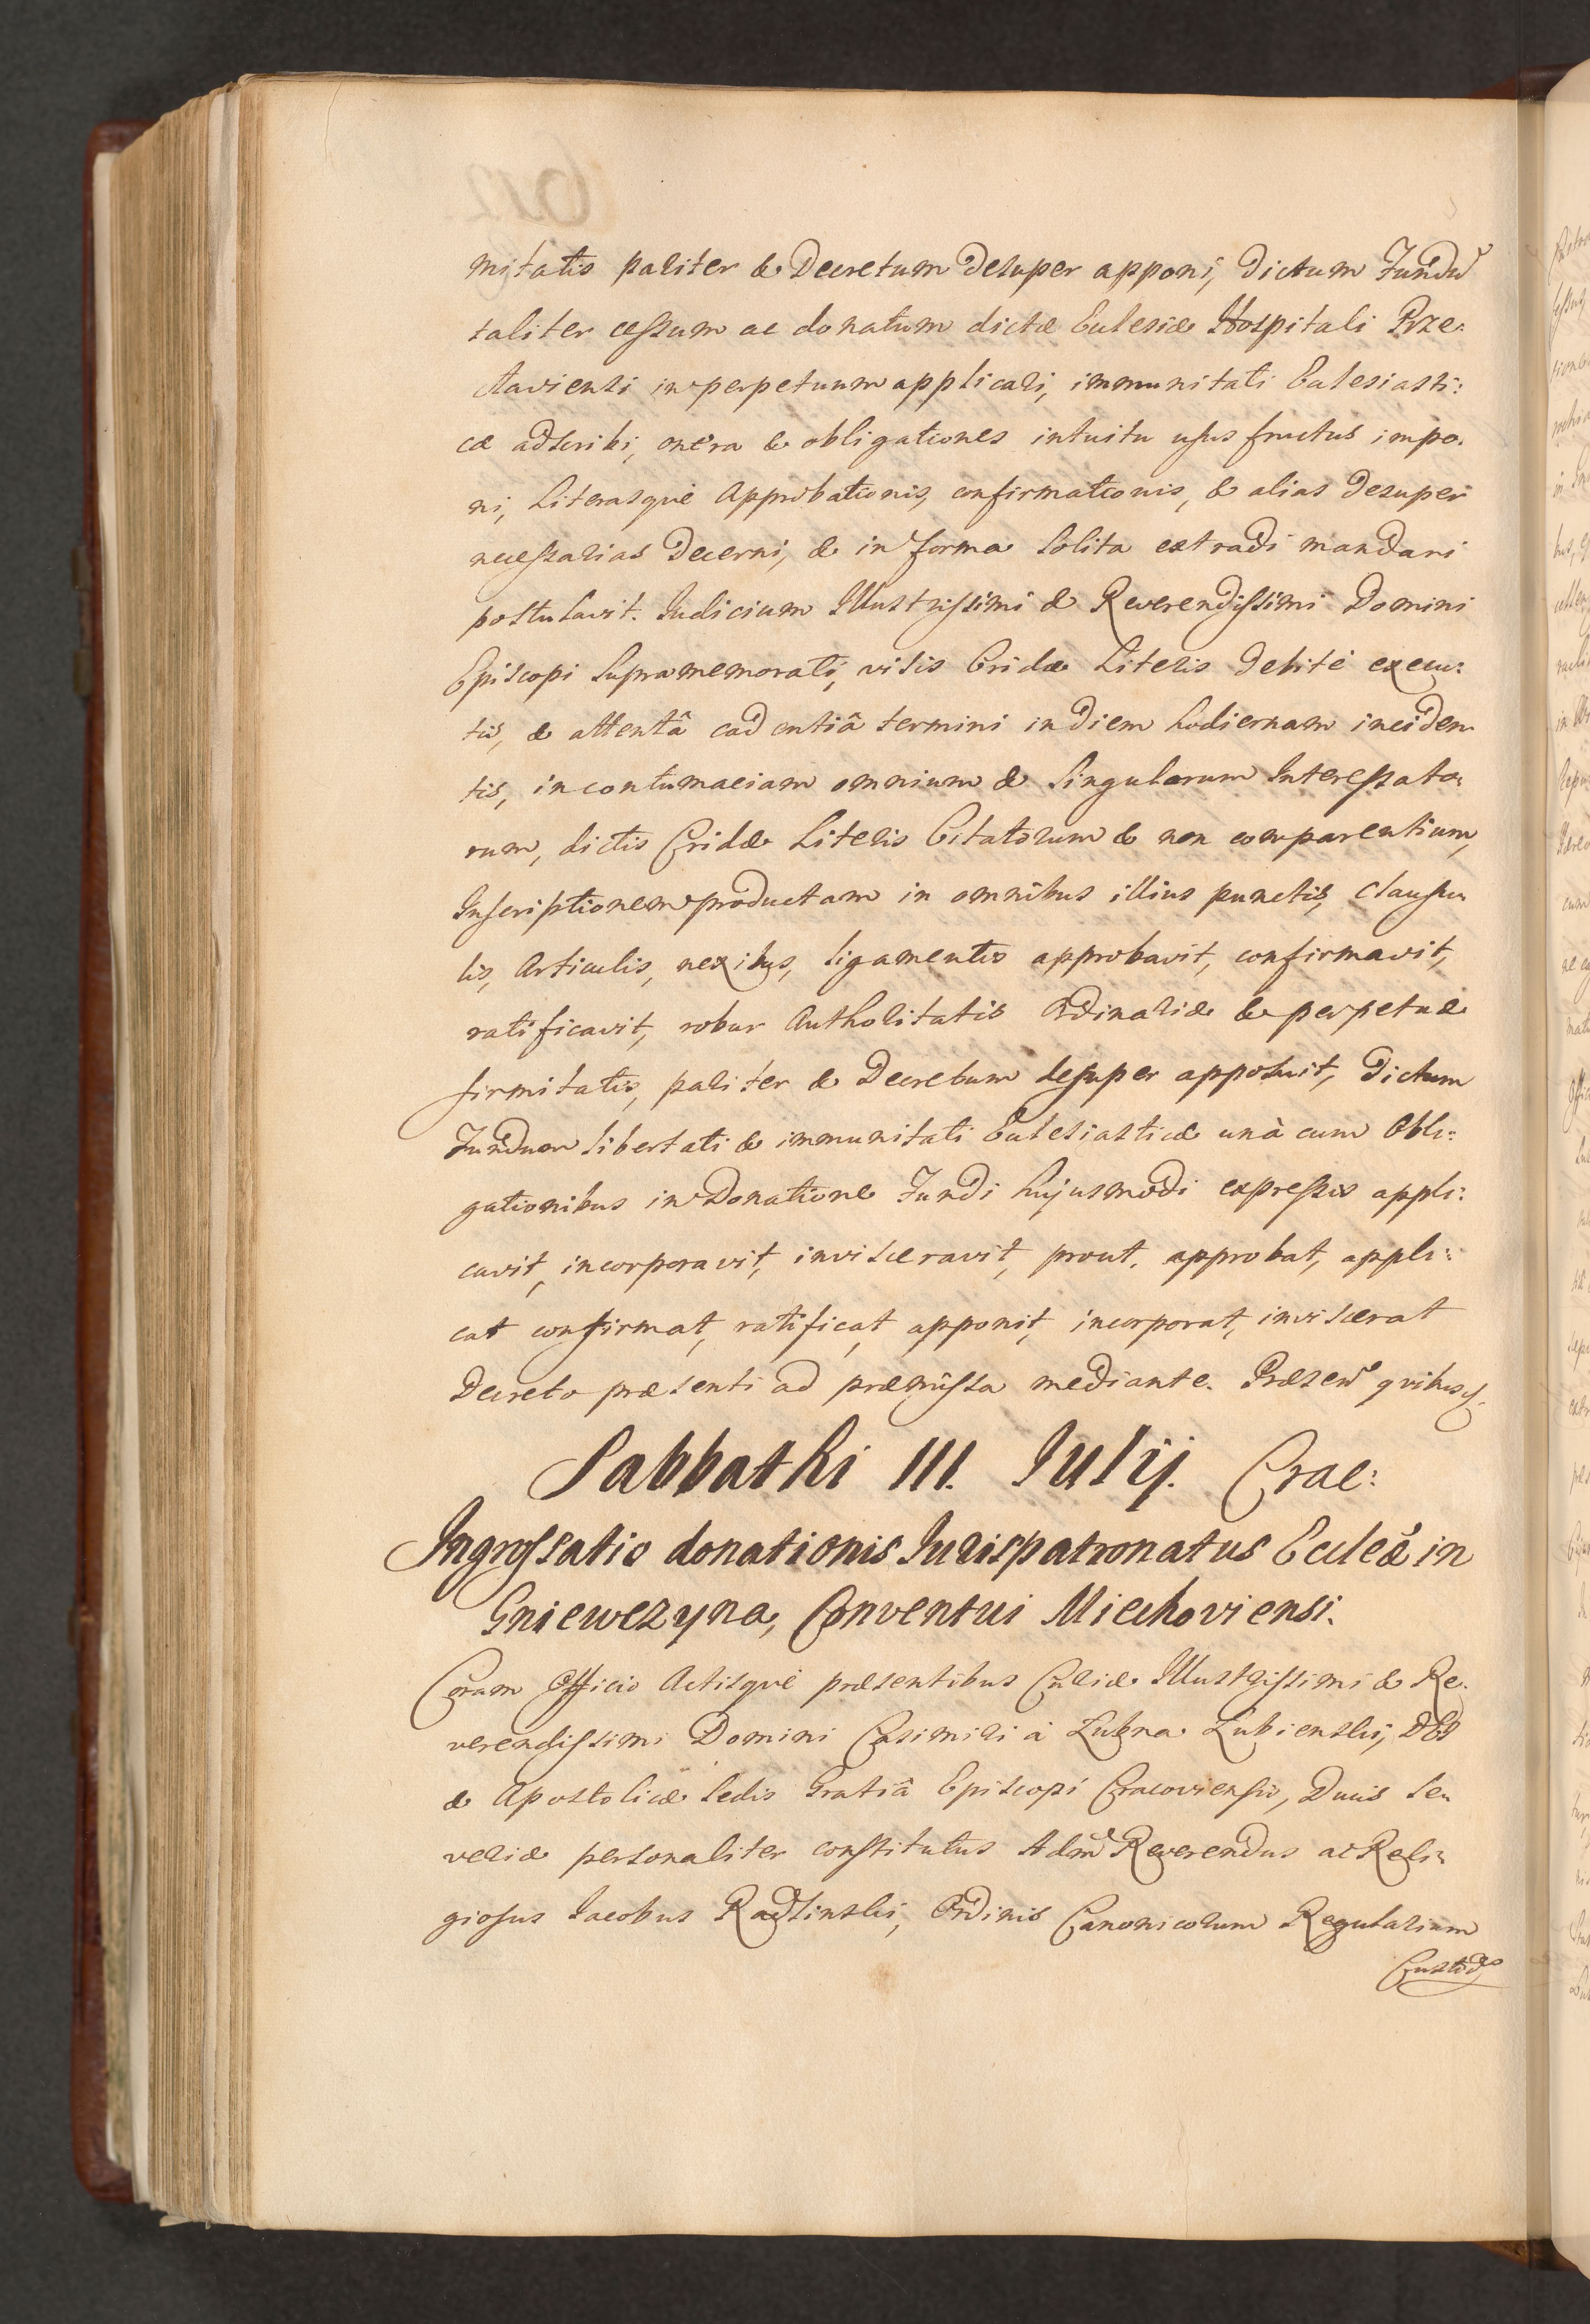 mitatis pariter & Decretum desuper apponi, dictum Fundũ
taliter cessum ac donatum dictæ Eclesiæ Hospitali Prze:
clawiensi in perpetuum applicari, immunitati Eclesiasti:
cæ adscribi, onera & obligationes intuitu usus fructus impo:
ni, Literasquè Approbationis, confirmationis, & alias desuper
necessarias decerni, & in forma solita extradi mandari
postulavit. Iudicium Illustrissimi & Reverendissimi Domini
Episcopi supramemorati, visis Cridæ Literis debitè execu:
tis, & attentâ cadentiâ termini in diem hodiernam inciden
tis, in contumaciam omnium & singulorum Interessato:
rum, dictis Cridæ Literis Citatorum & non comparentium,
Inscriptionem productam in omnibus illius punctis, clausu
lis, Articulis, nexibus, ligamentis approbavit, confirmavit,
ratificavit, robur Authoritatis Ordinariæ & perpetuæ
firmitatis, pariter & Decretum desuper apposuit, dictum
Fundum libertati & immunitati Eclesiasticæ unà cum Obli:
gationibus in Donatione Fundi hujusmodi expressis appli:
cavit, incorporavit, invisceravit, prout, approbat, appli:
cat confirmat, ratificat, apponit, incorporat, inviscerat
Decreto præsenti ad præmissa mediante. Præsen quibus
Sabbathi III. Iulij. Crac:
Ingrossatio donationis Iurispatronatus Ecclæ in
Gniewczyna, Conventui Miechoviensi.
Coram Officio Actisquè præsentibus Curiæ Illustrissimi & Re:
verendissimi Domini Casimiri à Lubna Lubienski, DEI
& Apostolicæ Sedis Gratiâ Episcopi Cracoviensis, Ducis Se
veriæ personaliter constitutus Adm Reverendus ac Reli:
giosus Iacobus Radlinski, Ordinis Canonicorum Regularium
Custod